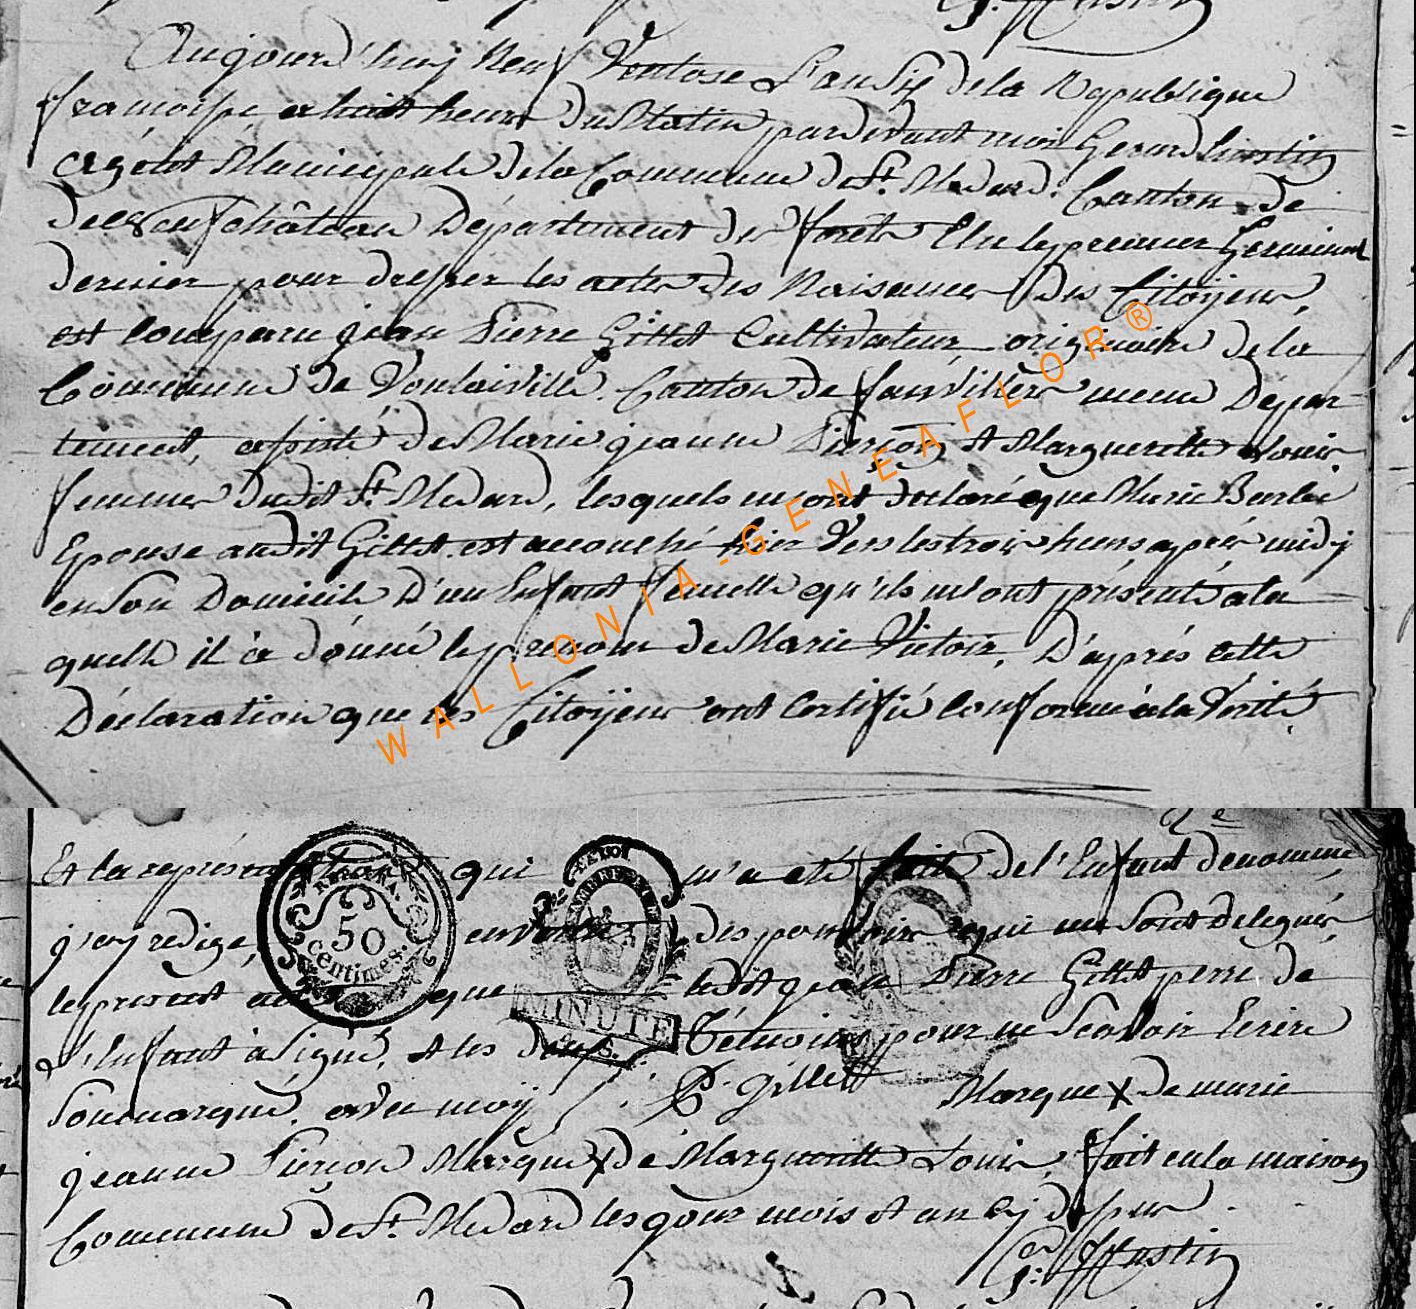 G. Hustin
Aujourd'huy Neuf Ventose L'an Six de la Republique
francoise, a huit heure du Matin pardevant moi Gerard hustin
agent Municipale de la Commune de St. Medard. Canton de
de Neufchâteau Département des forêts Elu le premier Germinal
dernier pour dresser les actes des Naisances des Citoÿens,
est comparu jean Pierre Gillet Cultivateur originaire de la
Commune de Vonlaiville. Canton de fanvillers meme Dépar-
tement, assisté de Marie jeanne Pierson et Marguerette Louis
femmes dudit St. Medard, lesquels m'ont declaré que Marie Barbe
Epouse audit Gillet est accouché hier Vers les trois heurs après midÿ
en son Domicile D'un Enfant femelle qu'ils m'ont présenté a la
quelle il a dónné le prenom de Marie Victoire, D'après cette
Déclaration que les Citoÿens ont certifié conforme a la Vérité
2e
Et la représentation qui m'a eté fait de l'Enfant denommé
j'ay redigé, en vertu des pouvoirs qui me sont delegués,
le present acte que ledit jean Pierre Gillet perre de
l'Enfant à signé, et les deux Témoins pour ne Scavoir Ecrire
son marqué, avec moÿ P. Gillet Marque X de marie
jeanne Pierson Marque X de Marguerette Louis, fait en la maison
Commune de St. Medard les jour mois et an cÿ dessus.
Gd. Hustin
50
Centimes.
MINUTE
WALLONIA-GENEAFLOR®